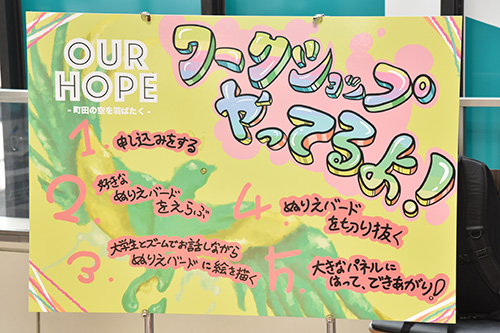 OUR
HOPE
- 町田の空を羽ばたく -
ワークショップ
やってるよ!
1. 申し込みをする
2. 好きな
ぬりえバード
をえらぶ
3. 大学生とズームでお話しながら
ぬりえバードに絵を描く
4. ぬりえバード
を切り抜く
5. 大きなパネルに
はって、できあがり!